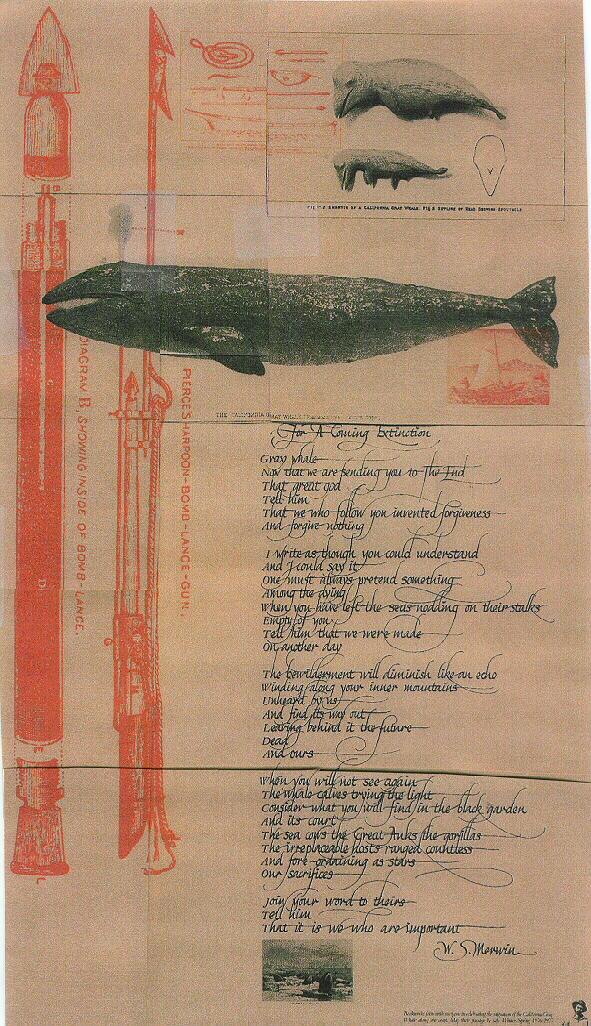 FIG. 1-2 EMBRYO OF A CALIFORNIA GRAY WHALE. FIG 3 OUTLINE OF HEAD SHOWING SPOUTHOLE
B
DIAGRAM B, SHOWING INSIDE OF BOMB-LANCE.
PIERCE'S HARPOON-BOMB-LANCE-GUN.
D
E
C
THE CALIFORNIA GRAY WHALE
For A Coming Extinction
Gray whale
Now that we are sending you to The End
That great god
Tell him
That we who follow you invented forgiveness
And forgive nothing
I write as though you could understand
And I could say it
One must always pretend something
Among the dying
When you have left the seas nodding on their stalks
Empty of you
Tell him that we were made
On another day
The bewilderment will diminish like an echo
Winding along your inner mountains
Unheard by us
And find its way out
Leaving behind it the future
Dead
And ours
When you will not see again
The whale calves trying the light
Consider what you will find in the black garden
And its court
The sea cows the Great Auks the gorillas
The irreplaceable hosts ranged countless
And fore-ordaining as stars
Our sacrifices
Join your word to theirs
Tell him
That it is we who are important
W. S. Merwin
the migration of the California Gray
Whale along our coast. May their passage be safe. Winter-Spring